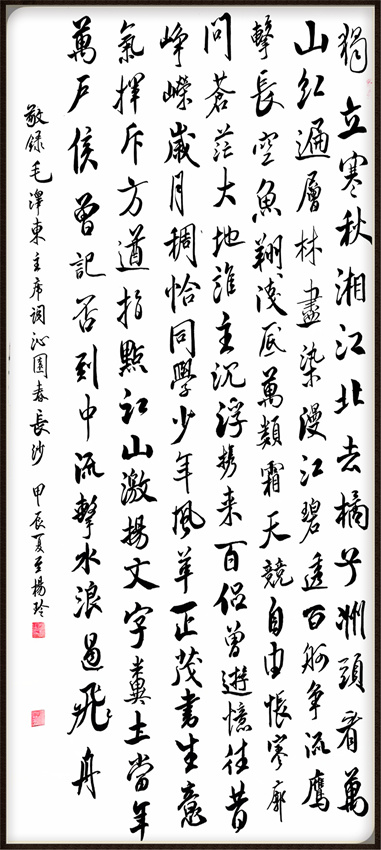 獨立寒秋湘江北去橘子洲頭看萬
山紅遍層林盡染漫江碧透百舸爭流鷹
擊長空魚翔淺底萬類霜天競自由悵寥廓
問蒼茫大地誰主沉浮携来百侶曾遊憶往昔
崢嶸歲月稠恰同學少年風華正茂書生意
氣揮斥方遒指點江山激揚文字糞土當年
萬戶侯曾記否到中流擊水浪遏飛舟
敬録毛澤東主席詞沁園春長沙 甲辰夏至楊玲